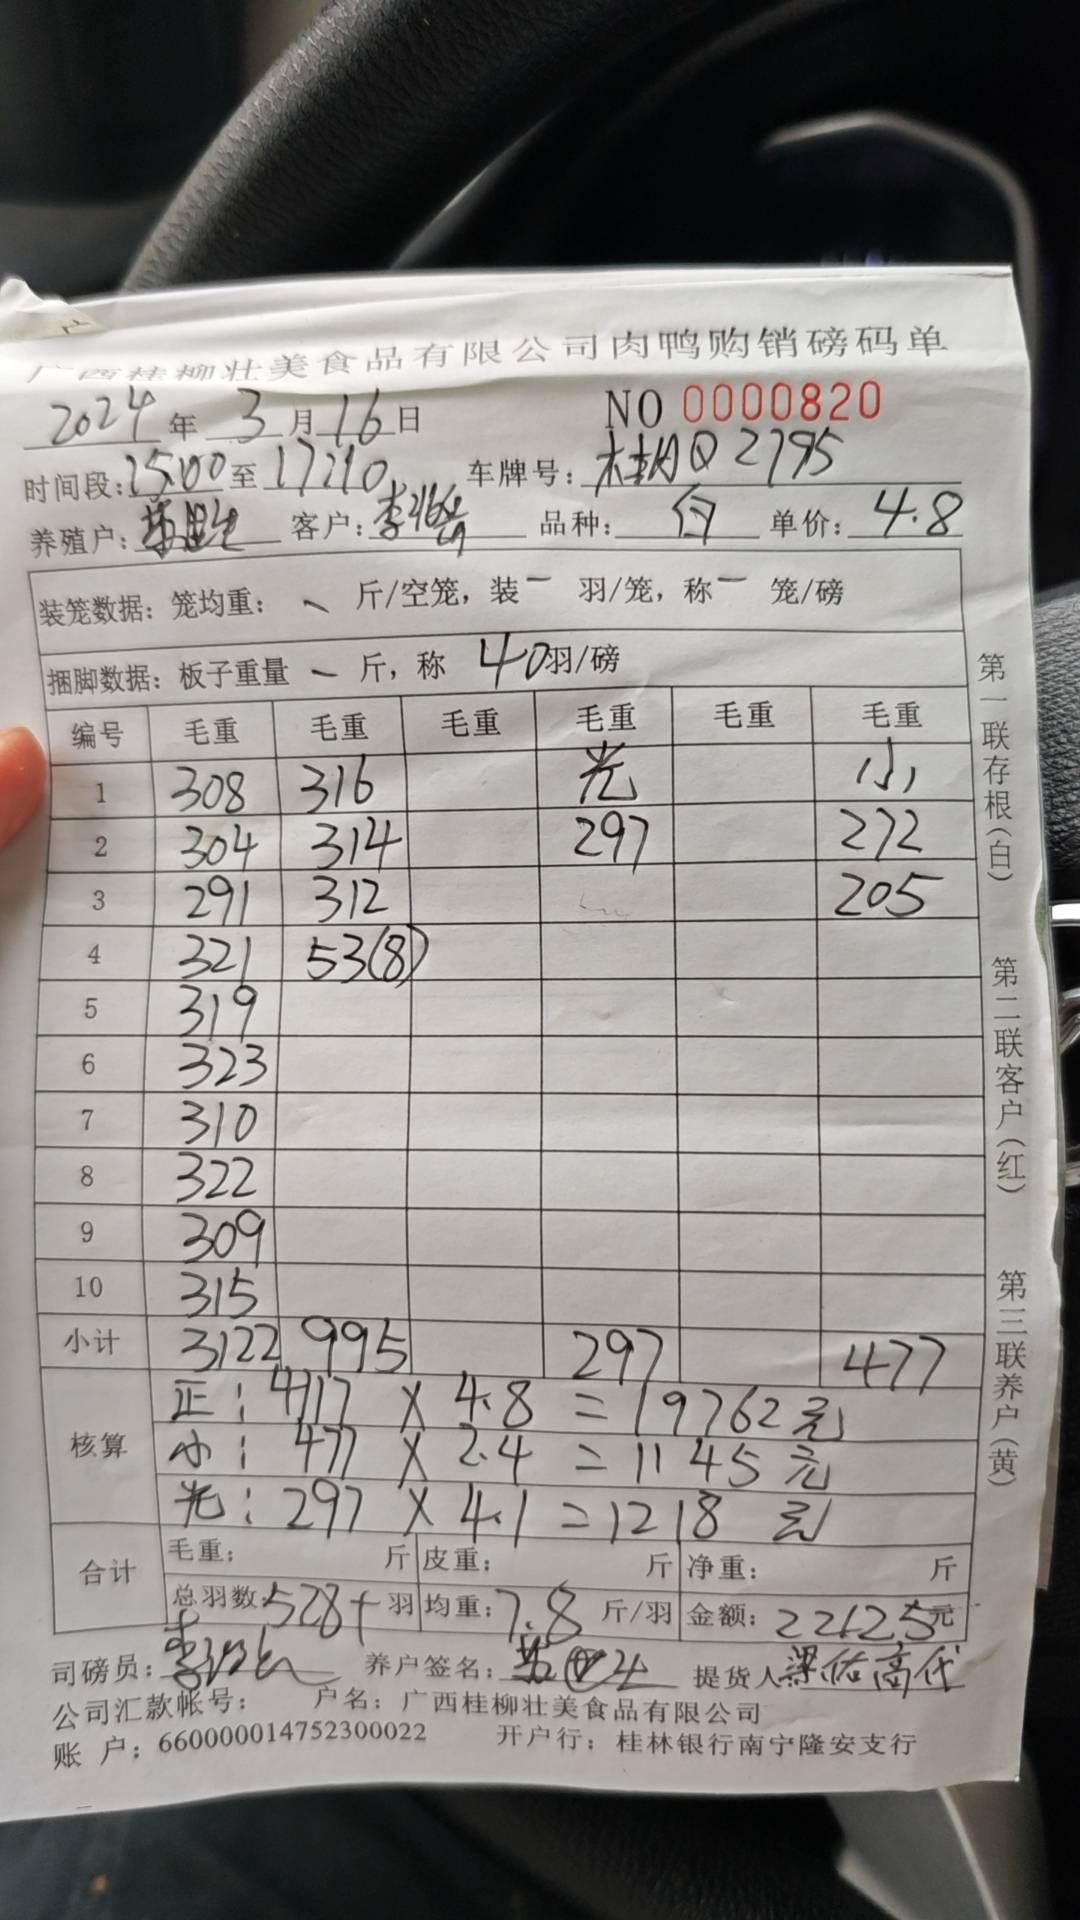 广西桂柳壮美食品有限公司肉鸭购销磅码单
2024年3月16日 NO 0000820
时间段:15:00至17:10 车牌号:桂AQ2795
养殖户: 客户:李 品种:白 单价:4.8
装笼数据:笼均重: 斤/空笼,装一羽/笼,称一笼/磅
捆脚数据:板子重量 一 斤,称 40羽/磅
编号 毛重 毛重 毛重 毛重 毛重 毛重
1 308 316 光 小
2 304 314 297 272
3 291 312 205
4 321 53(8)
5 319
6 323
7 310
8 322
9 309
10 315
小计 3122 995 297 477
核算
正:4117 X 4.8 = 19762元
小:477 X 2.4 = 1145元
光:297 X 4.1 = 1218元
合计
毛重: 斤 皮重: 斤 净重: 斤
总羽数:528+羽 均重:7.8斤/羽 金额:22125元
司磅员:李 养户签名: 提货人梁佑高代
公司汇款帐号: 户名:广西桂柳壮美食品有限公司
账 户:660000014752300022 开户行:桂林银行南宁隆安支行
第一联存根(白)
第二联客户(红)
第三联养户(黄)